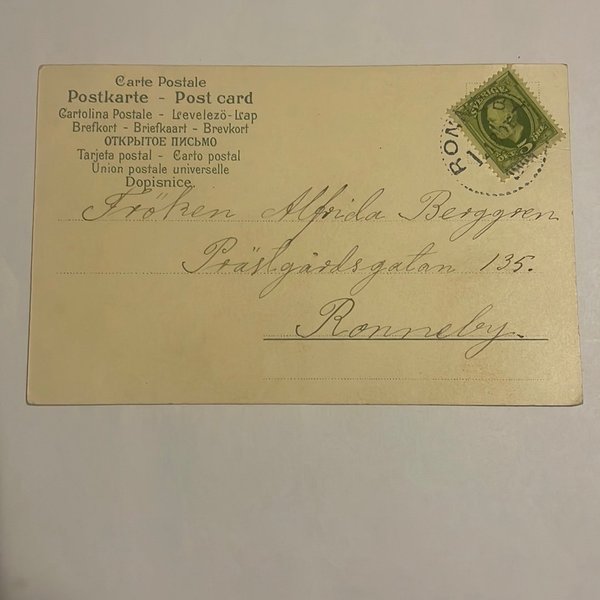 Carte Postale
Postkarte - Post card
Cartolina Postale - Levelező-Lap
Brefkort - Briefkaart - Brevkort
ОТКРЫТОЕ ПИСЬМО
Tarjeta postal - Carto postal
Union postale universelle
Dopisnice
SVERIGE
5
RON
Fröken Alfrida Berggren
Prästgårdsgatan 135.
Ronneby.